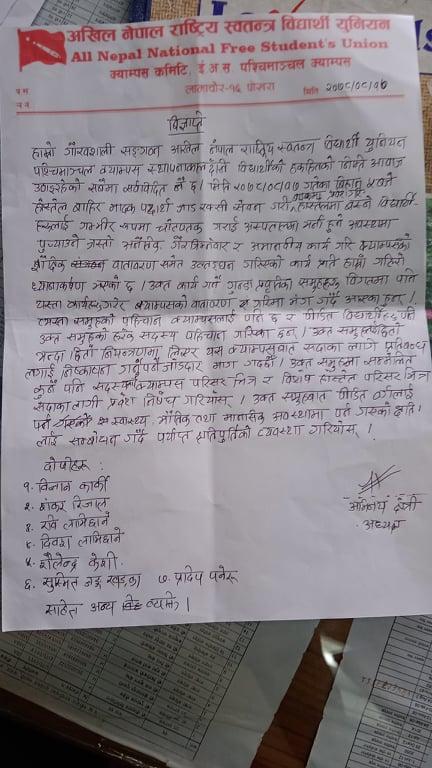 अखिल नेपाल राष्ट्रिय स्वतन्त्र विद्यार्थी युनियन
All Nepal National Free Student's Union
क्याम्पस कमिटि, इ.अ.स. पश्चिमाञ्चल क्याम्पस
लामाचौर-१६ पोखरा
प.सं.
च.नं.
मिति २०७८/०८/१७
विज्ञप्ति
हाम्रो गौरवशाली सङ्गठन अखिल नेपाल राष्ट्रिय स्वतन्त्र विद्यार्थी युनियन
पश्चिमाञ्चल क्याम्पस स्थापनाकाल देखि विद्यार्थीको हकहितको निम्ति आवाज
उठाइरहेको सर्वविदितै छ । मिति २०७८/०८/१७ गतेका बिहान
होस्टेल बाहिर मादक पदार्थ जाड रक्सी सेवन गरी होस्टेलमा बस्ने विद्यार्थी-
हरूलाई गम्भीर रूपमा चोटपटक गराई अस्पतालमा भर्ना हुने अवस्थामा
पुर्‍याउने जस्तो अनैतिक गैरजिम्मेवार र अमानवीय कार्य गरि क्याम्पसको
शैक्षिक वातावरण समेत गरिएको कार्य प्रति हाम्रो गहिरो
ध्यानाकर्षण भएको छ । उक्त कार्य गर्ने गुन्डा प्रवृतिका समूहहरू विगतमा पनि
यस्ता कार्यहरू गरेर क्याम्पसको वातावरण भंग गर्दै आएका हुन् ।
त्यस्ता समूहको पहिचान क्याम्पसलाई पनि छ र पीडित विद्यार्थीहरूले पनि
उक्त समूहको हरेक सदस्य पहिचान गरिसका छन् । उक्त समूहलाई
भन्दा छिटो नियन्त्रणमा लिएर यस क्याम्पसबाट सदाका लागि प्रतिबन्ध
लगाई निष्कासन गर्नुपर्ने जोडदार माग गर्दछौं । उक्त समूहमा संलग्न
कुनै पनि सदस्यलाई क्याम्पस परिसर भित्र र विशेष होस्टेल परिसर भित्र
सदाका लागी प्रवेश निषेध गरियोस् । उक्त समूहबाट पीडित वर्गलाई
पर्न गएको स्वास्थ्य, भौतिक तथा मानसिक अवस्थामा पर्न गएको क्षति-
लाई सम्बोधन गर्दै पर्याप्त क्षतिपुर्तिको व्यवस्था गरियोस् ।
दोषीहरू :
१. विमान कार्की
२. शंकर रिजाल
३. रवि लामिछाने
४. दिवश लामिछाने
५. शैलेन्द्र केशी
६. सुस्मित जङ्ग खड्का ७. प्रदिप पनेरू
सहित अन्य व्यक्ति ।
अभिनय
अध्यक्ष